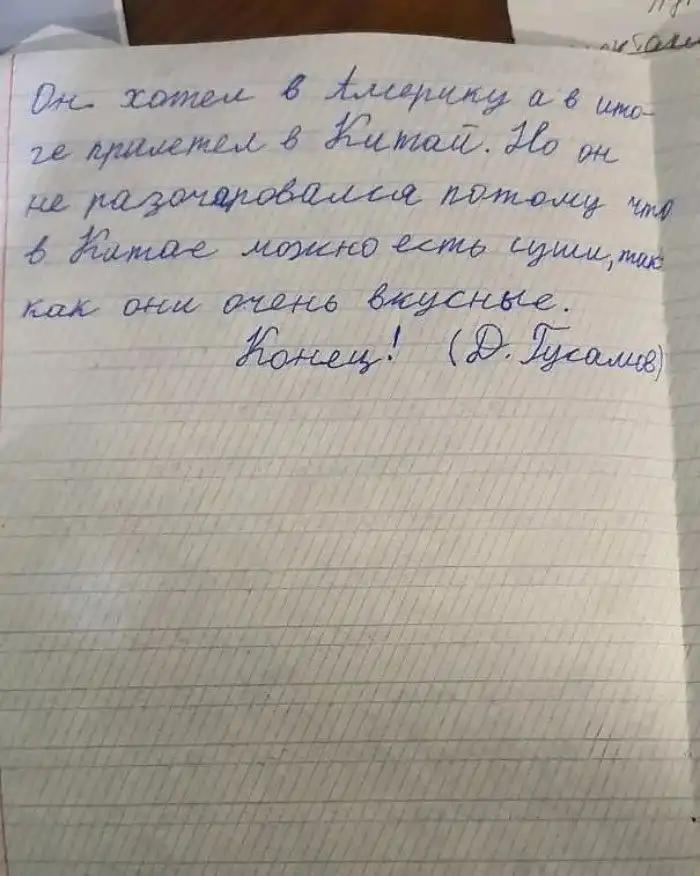 Он хотел в Америку а в ито-
ге прилетел в Китай. Но он
не разочаровался потому что
в Китае можно есть суши, так
как они очень вкусные.
Конец! (Д. Гусамов)